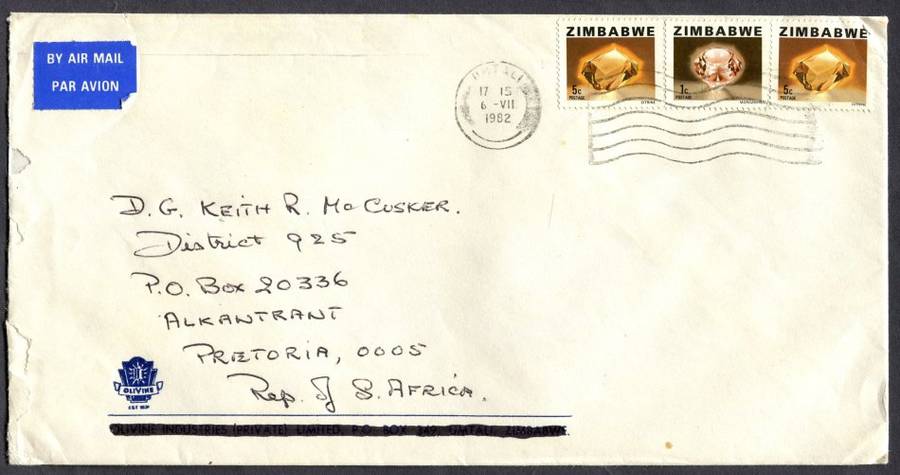 BY AIR MAIL
PAR AVION
UMTALI
17 15
6 -VII
1982
ZIMBABWE
5c
POSTAGE
CITRINE
ZIMBABWE
1c
POSTAGE
ZIMBABWE
5c
POSTAGE
CITRINE
D.G. KEITH R. McCUSKER.
District 925
P.O. Box 20336
ALKANTRANT
PRETORIA, 0005
Rep. of S. AFRICA.
OLIVINE
EST 1931
OLIVINE INDUSTRIES (PRIVATE) LIMITED, P.O. BOX 249, UMTALI, ZIMBABWE.